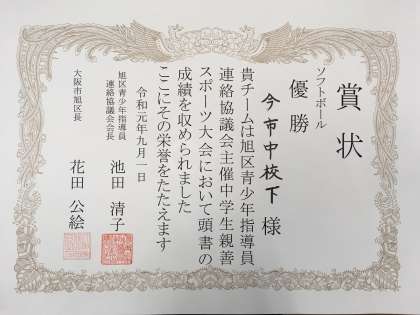 賞状
ソフトボール
優勝
今市中校下 様
貴チームは旭区青少年指導員
連絡協議会主催中学生親善
スポーツ大会において頭書の
成績を収められました
ここにその栄誉をたたえます
令和元年九月一日
旭区青少年指導員
連絡協議会会長
池田 清子
大阪市旭区長
花田 公絵